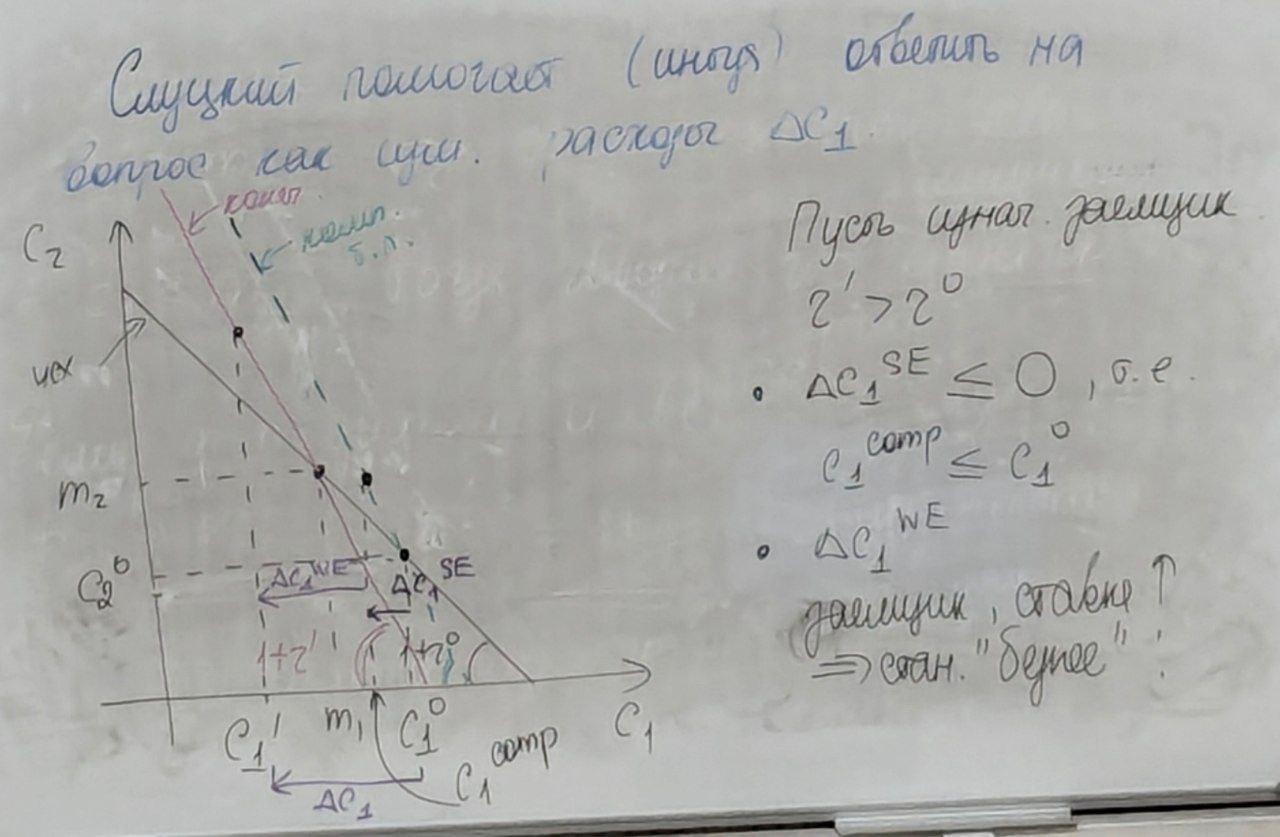 Слуцкий помогает (иногда) ответить на
вопрос как изм. расходы ΔC₁.
C₂
конеч.
комп.
б.л.
исх
m₂
C₂⁰
ΔC₁ᵂᴱ
ΔC₁ ˢᴱ
1+r'
1+r⁰
C₁'
m₁
C₁⁰
C₁ᶜᵒᵐᵖ
C₁
ΔC₁
Пусть изнач. заемщик
r' > r⁰
• ΔC₁ˢᴱ ≤ 0, т.е.
C₁ᶜᵒᵐᵖ ≤ C₁⁰
• ΔC₁ᵂᴱ
заемщик, ставка ↑
⇒ стан. "беднее"